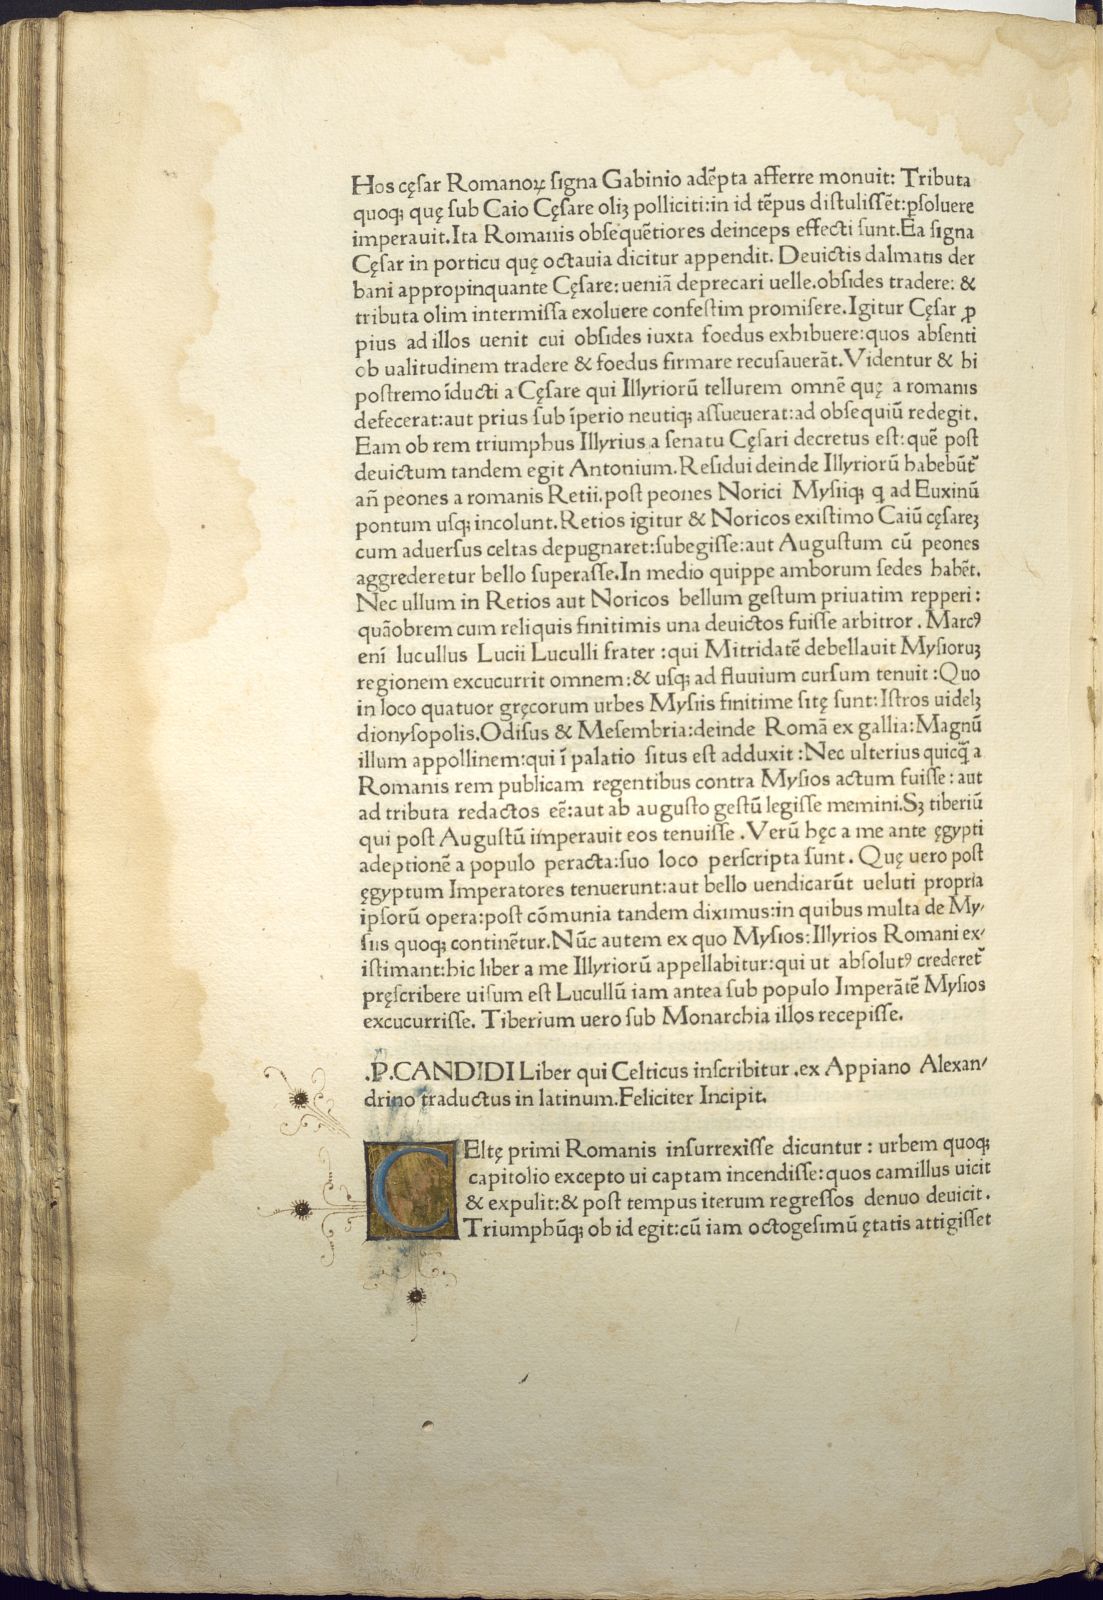 Hos cęſar Romanoꝝ ſigna Gabinio adēpta afferre monuit: Tributa
quoqꝫ quę ſub Caio Cęſare oliꝫ polliciti:in id tēpus diſtuliſſēt:ꝑſoluere
imperauit.Ita Romanis obſequētiores deinceps effecti ſunt.Ea ſigna
Cęſar in porticu quę octauia dicitur appendit. Deuictis dalmatis der
bani appropinquante Cęſare:ueniā deprecari uelle.obſides tradere: &
tributa olim intermiſſa exoluere confeſtim promiſere.Igitur Cęſar ꝓ
pius ad illos uenit cui obſides iuxta foedus exhibuere:quos abſenti
ob ualitudinem tradere & foedus firmare recuſauerāt.Videntur & hi
poſtremo īducti a Cęſare qui Illyriorū tellurem omnē quę a romanis
defecerat:aut prius ſub īperio neutiqꝫ aſſueuerat:ad obſequiū redegit.
Eam ob rem triumphus Illyrius a ſenatu Cęſari decretus eſt:quē poſt
deuictum tandem egit Antonium.Reſidui deinde Illyriorū habebūt᷑
an̄ peones a romanis Retii.poſt peones Norici Myſiiqꝫ q ad Euxinū
pontum uſqꝫ incolunt.Retios igitur & Noricos exiſtimo Caiū cęſareꝫ
cum aduerſus celtas depugnaret:ſubegiſſe:aut Auguſtum cū peones
aggrederetur bello ſuperaſſe.In medio quippe amborum ſedes habēt.
Nec ullum in Retios aut Noricos bellum geſtum priuatim repperi:
quāobrem cum reliquis finitimis una deuictos fuiſſe arbitror. Marcꝰ
enī lucullus Lucii Luculli frater:qui Mitridatē debellauit Myſioruꝫ
regionem excucurrit omnem:& uſqꝫ ad fluuium curſum tenuit:Quo
in loco quatuor gręcorum urbes Myſiis finitime ſitę ſunt:Iſtros uidelꝫ
dionyſopolis.Odiſus & Meſembria:deinde Romā ex gallia:Magnū
illum appollinem:qui ī palatio ſitus eſt adduxit:Nec ulterius quicq̄ a
Romanis rem publicam regentibus contra Myſios actum fuiſſe: aut
ad tributa redactos eē:aut ab auguſto geſtū legiſſe memini.Sꝫ tiberiū
qui poſt Auguſtū imperauit eos tenuiſſe.Verū hęc a me ante ęgypti
adeptionē a populo peracta:ſuo loco perſcripta ſunt. Quę uero poſt
ęgyptum Imperatores tenuerunt:aut bello uendicarūt ueluti propria
ipſorū opera:poſt cōmunia tandem diximus:in quibus multa de My⸗
ſiis quoqꝫ continētur.Nūc autem ex quo Myſios:Illyrios Romani ex⸗
iſtimant:hic liber a me Illyriorū appellabitur:qui ut abſolutꝰ crederet᷑
pręſcribere uiſum eſt Lucullū iam antea ſub populo Imperātē Myſios
excucurriſſe. Tiberium uero ſub Monarchia illos recepiſſe.
.P.CANDIDI Liber qui Celticus inſcribitur.ex Appiano Alexan⸗
drino traductus in latinum.Feliciter Incipit.
CEltę primi Romanis inſurrexiſſe dicuntur: urbem quoqꝫ
capitolio excepto ui captam incendiſſe:quos camillus uicit
& expulit:& poſt tempus iterum regreſſos denuo deuicit.
Triumphūqꝫ ob id egit:cū iam octogeſimū ętatis attigiſſet